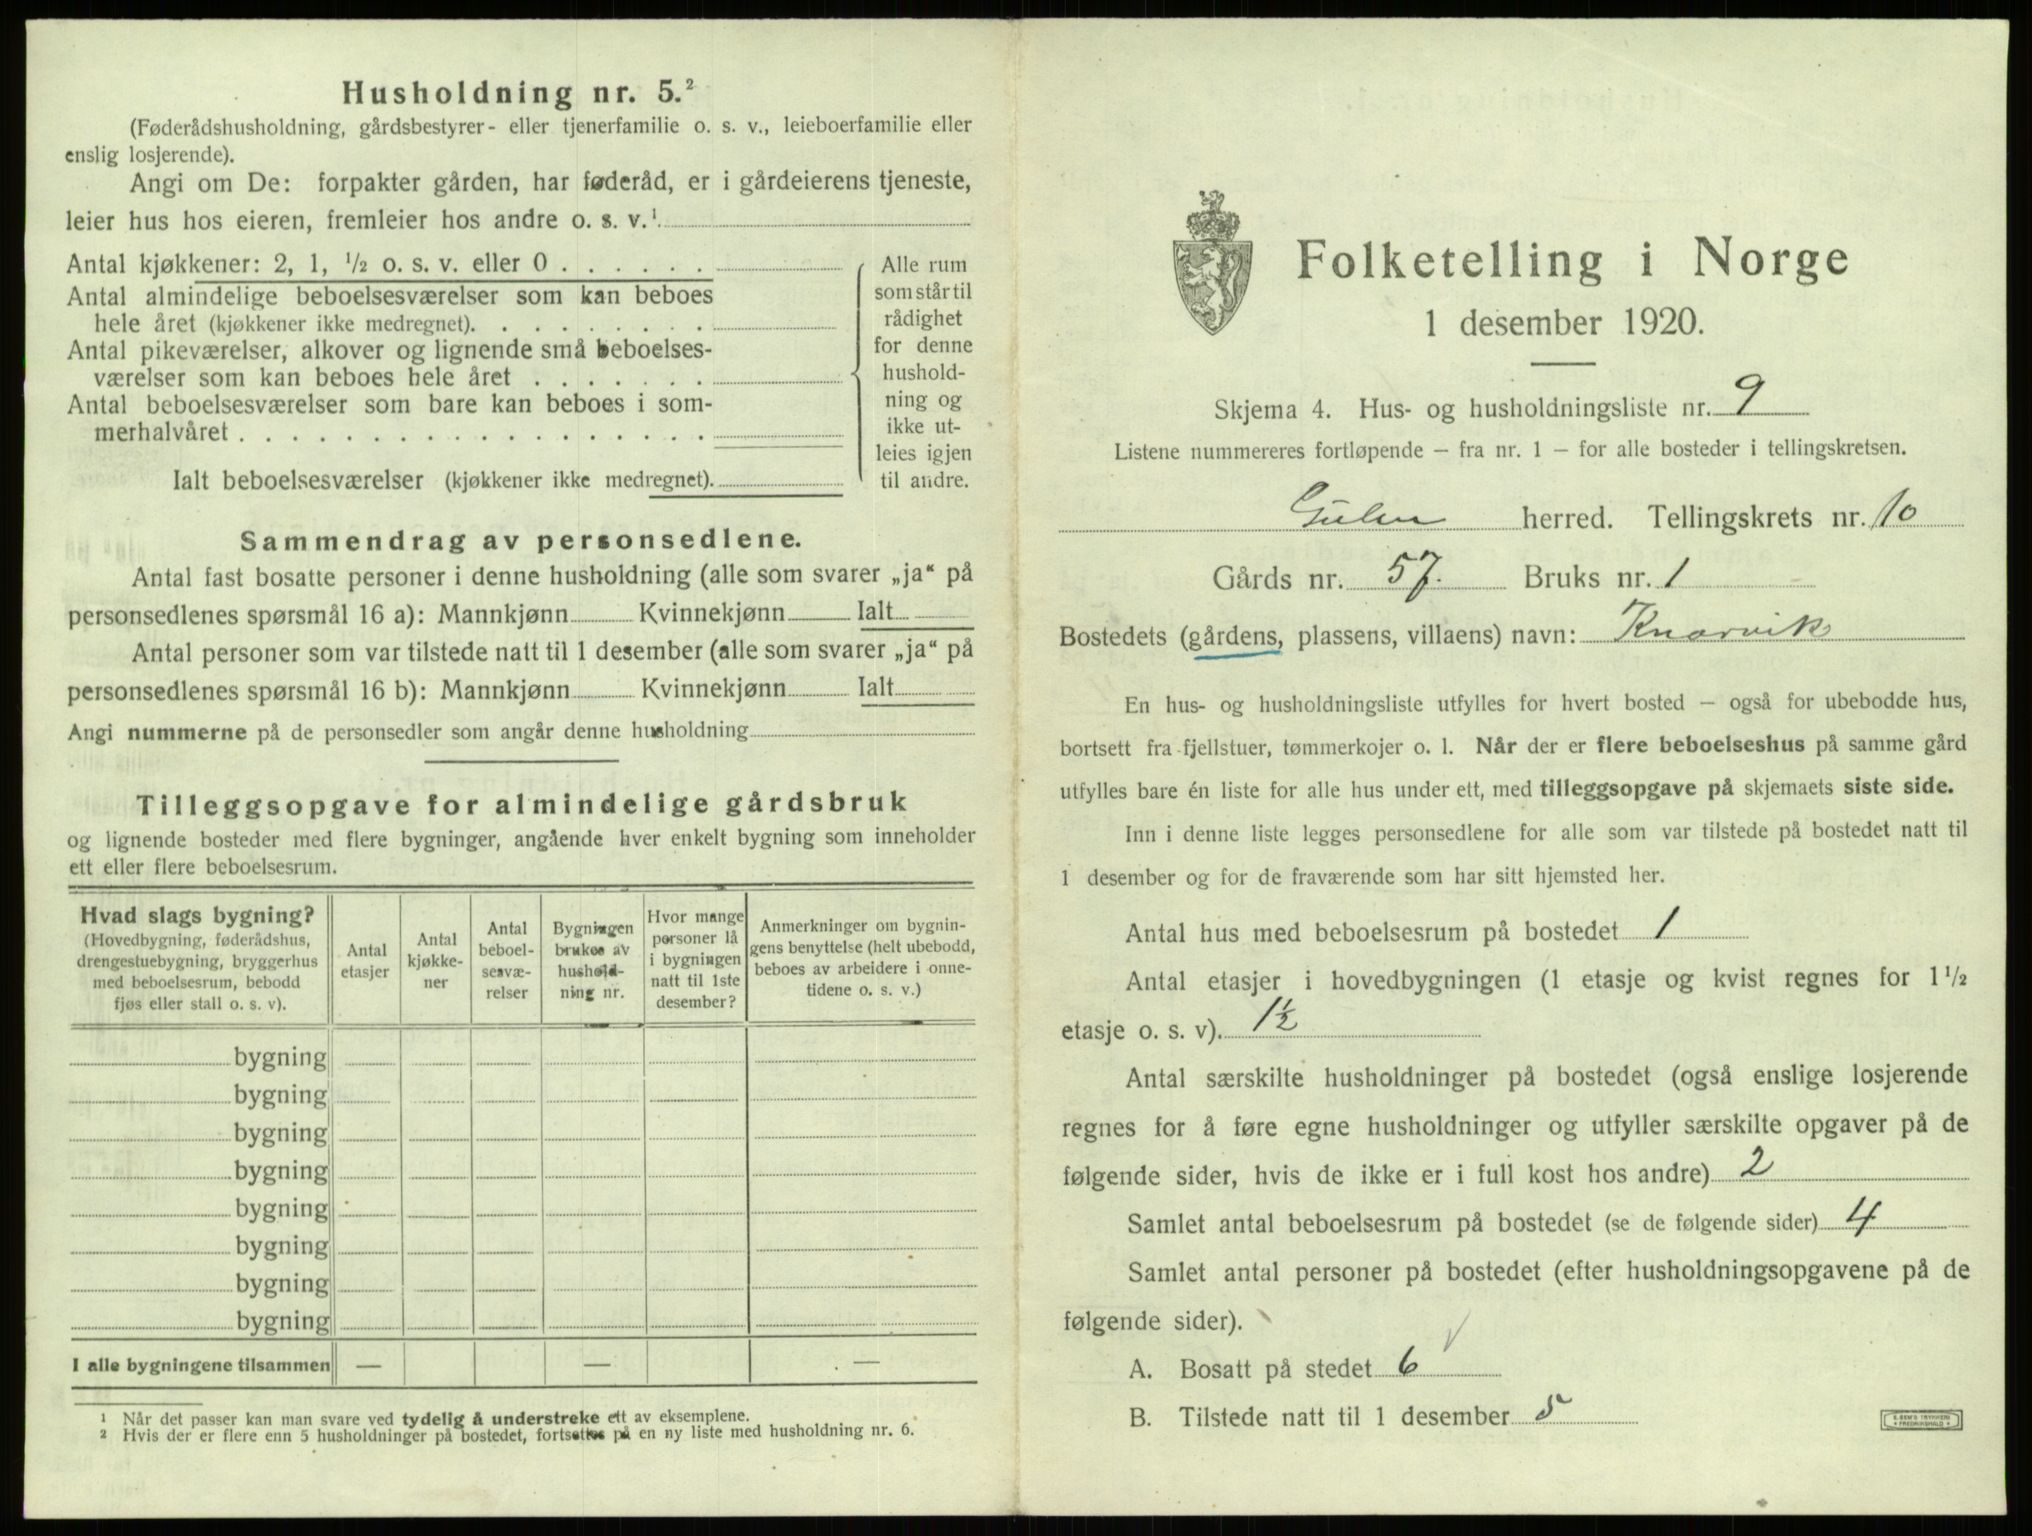 Husholdning nr. 5.²
(Føderådshusholdning, gårdsbestyrer- eller tjenerfamilie o. s. v., leieboerfamilie eller
enslig losjerende).
Angi om De: forpakter gården, har føderåd, er i gårdeierens tjeneste,
leier hus hos eieren, fremleier hos andre o. s. v.¹
Antal kjøkkener: 2, 1, ½ o. s. v. eller 0 . . . . . .
Antal almindelige beboelsesværelser som kan beboes
hele året (kjøkkener ikke medregnet). . . . . . . . .
Antal pikeværelser, alkover og lignende små beboelses-
værelser som kan beboes hele året . . . . . . .
Antal beboelsesværelser som bare kan beboes i som-
merhalvåret . . . . . . . . . . . . . . . . . .
Ialt beboelsesværelser (kjøkkener ikke medregnet).
Alle rum
som står til
rådighet
for denne
hushold-
ning og
ikke ut-
leies igjen
til andre.
Sammendrag av personsedlene.
Antal fast bosatte personer i denne husholdning (alle som svarer „ja“ på
personsedlenes spørsmål 16 a): Mannkjønn Kvinnekjønn Ialt
Antal personer som var tilstede natt til 1 desember (alle som svarer „ja“ på
personsedlenes spørsmål 16 b): Mannkjønn Kvinnekjønn Ialt
Angi nummerne på de personsedler som angår denne husholdning
Tilleggsopgave for almindelige gårdsbruk
og lignende bosteder med flere bygninger, angående hver enkelt bygning som inneholder
ett eller flere beboelsesrum.
Hvad slags bygning?
(Hovedbygning, føderådshus,
drengestuebygning, bryggerhus
med beboelsesrum, bebodd
fjøs eller stall o. s. v).
Antal
etasjer
Antal
kjøkke-
ner
Antal
beboel-
sesvæ-
relser
Bygningen
brukes av
hushold-
ning nr.
Hvor mange
personer lå
i bygningen
natt til 1ste
desember?
Anmerkninger om bygnin-
gens benyttelse (helt ubebodd,
beboes av arbeidere i onne-
tidene o. s. v.)
bygning
bygning
bygning
bygning
bygning
bygning
bygning
bygning
I alle bygningene tilsammen — — —
¹ Når det passer kan man svare ved tydelig å understreke ett av eksemplene.
² Hvis der er flere enn 5 husholdninger på bostedet, fortsettes på en ny liste med husholdning nr. 6.
Folketelling i Norge
1 desember 1920.
Skjema 4. Hus- og husholdningsliste nr. 9
Listene nummereres fortløpende — fra nr. 1 — for alle bosteder i tellingskretsen.
Gulen herred. Tellingskrets nr. 10
Gårds nr. 57. Bruks nr. 1
Bostedets (gårdens, plassens, villaens) navn: Knarvik
En hus- og husholdningsliste utfylles for hvert bosted — også for ubebodde hus,
bortsett fra fjellstuer, tømmerkojer o. l. Når der er flere beboelseshus på samme gård
utfylles bare én liste for alle hus under ett, med tilleggsopgave på skjemaets siste side.
Inn i denne liste legges personsedlene for alle som var tilstede på bostedet natt til
1 desember og for de fraværende som har sitt hjemsted her.
Antal hus med beboelsesrum på bostedet 1
Antal etasjer i hovedbygningen (1 etasje og kvist regnes for 1 ½
etasje o. s. v). 1½
Antal særskilte husholdninger på bostedet (også enslige losjerende
regnes for å føre egne husholdninger og utfyller særskilte opgaver på de
følgende sider, hvis de ikke er i full kost hos andre) 2
Samlet antal beboelsesrum på bostedet (se de følgende sider) 4
Samlet antal personer på bostedet (efter husholdningsopgavene på de
følgende sider).
A. Bosatt på stedet 6 √
B. Tilstede natt til 1 desember 5